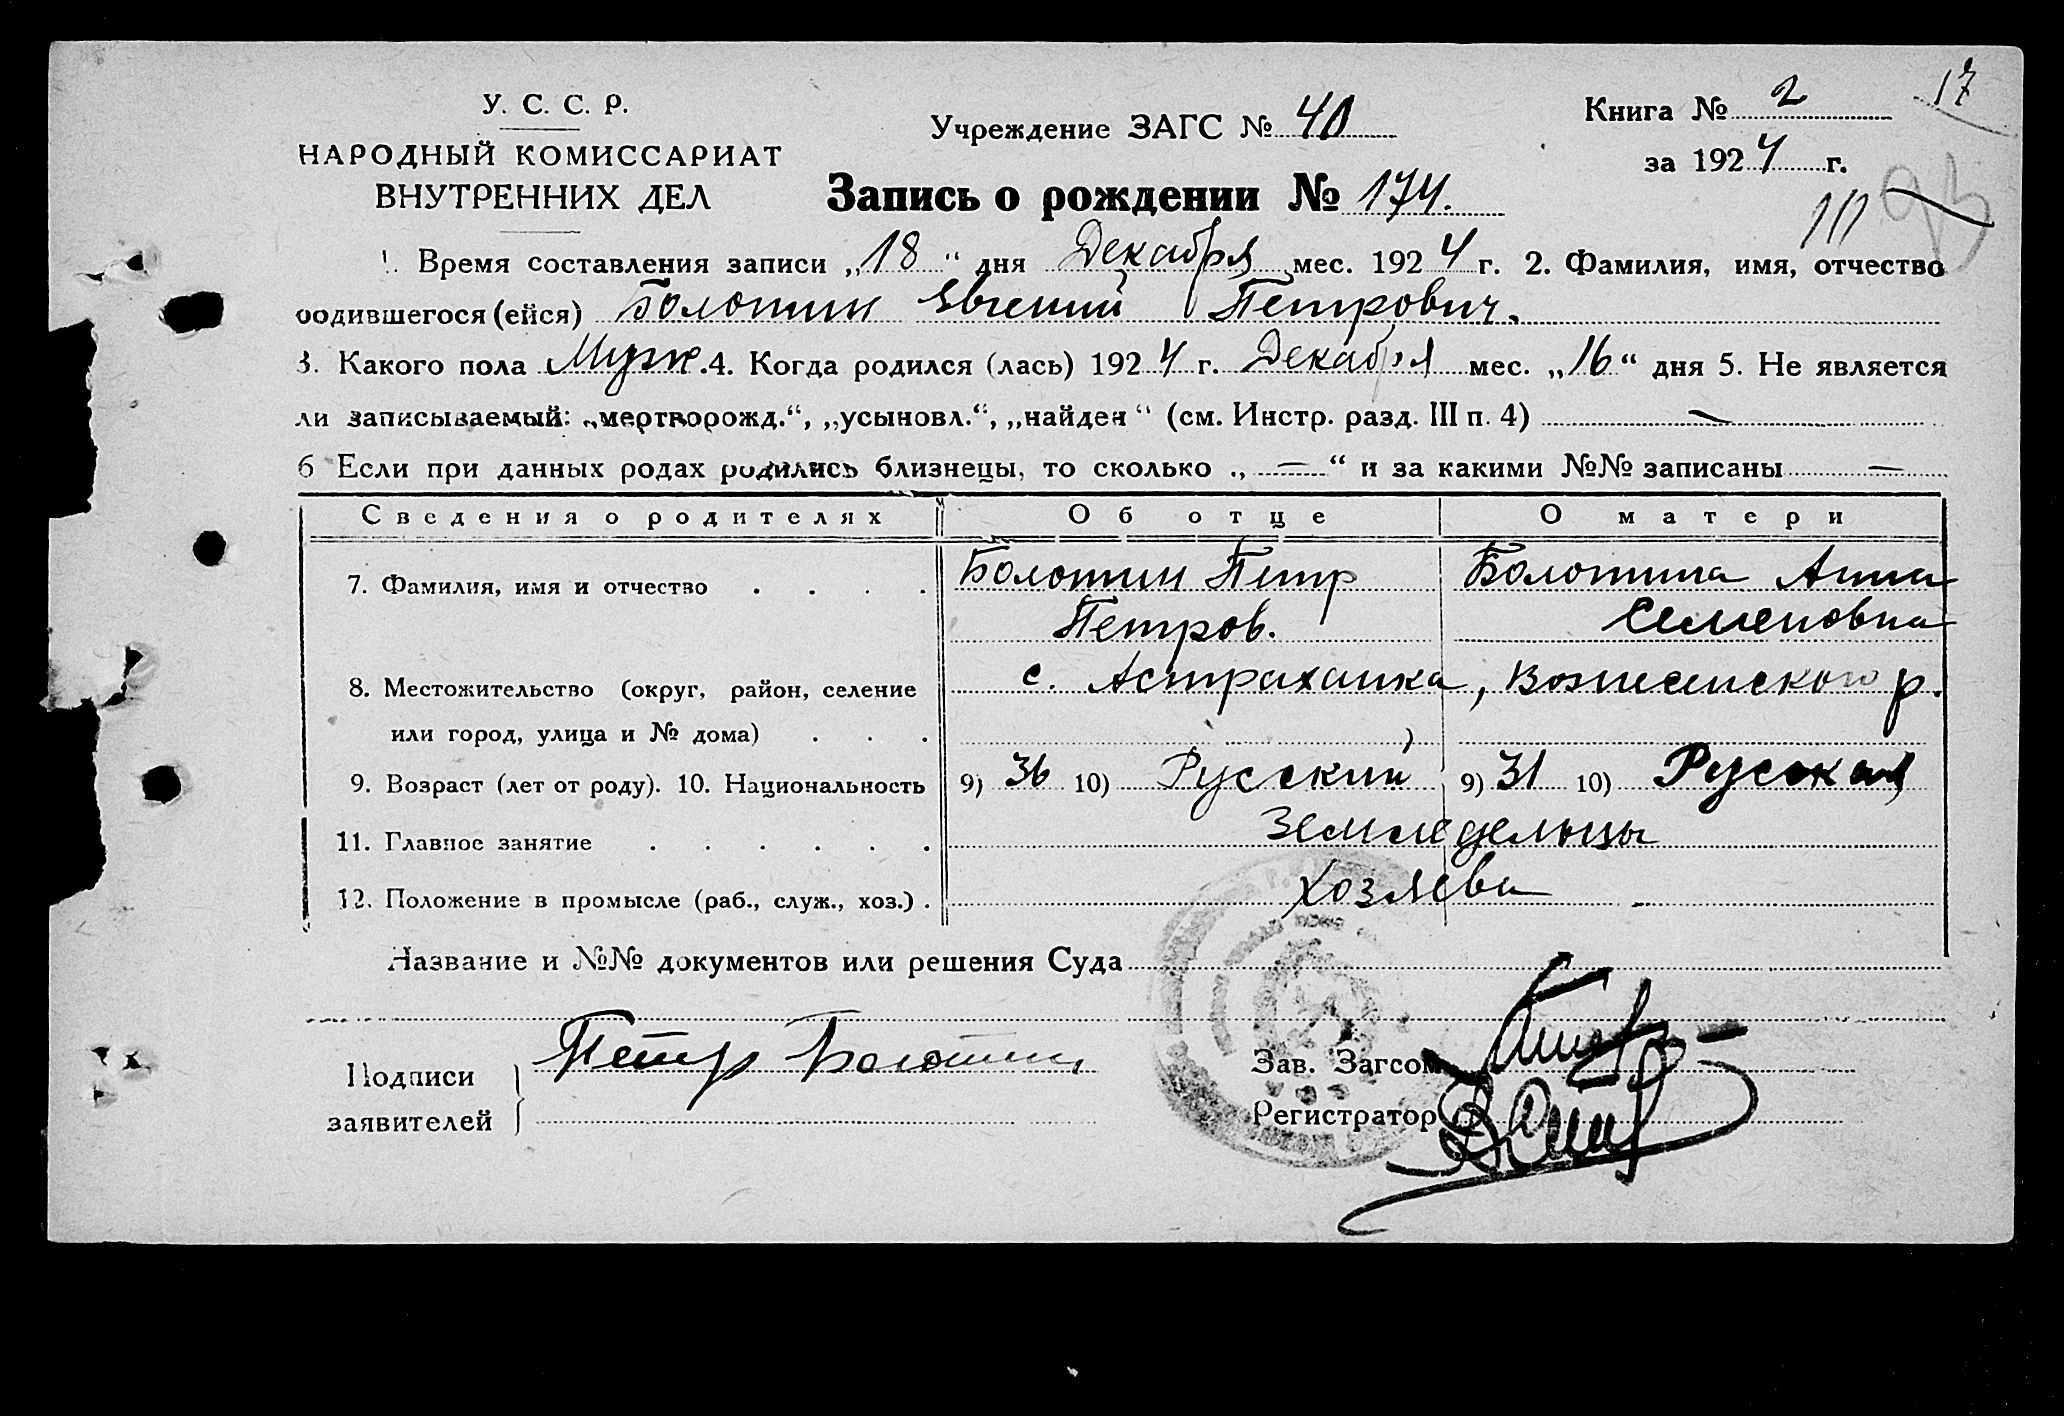 У. С. С. Р.
НАРОДНЫЙ КОМИССАРИАТ
ВНУТРЕННИХ ДЕЛ
Учреждение ЗАГС № 40
Книга № 2
17
за 1924 г.
Запись о рождении № 174.
93
1. Время составления записи „18“ дня Декабря мес. 1924 г. 2. Фамилия, имя, отчество
родившегося (ейся) Болотин Евгений Петрович.
3. Какого пола Муж. 4. Когда родился (лась) 1924 г. Декабря мес. „16“ дня 5. Не является
ли записываемый: „мертворожд.“, „усыновл.“, „найден“ (см. Инстр. разд. III п. 4) —
6 Если при данных родах родились близнецы, то сколько „ — “ и за какими №№ записаны —
Сведения о родителях Об отце О матери
7. Фамилия, имя и отчество . . . . Болотин Петр Болотина Анна
Петров. Семеновна
8. Местожительство (округ, район, селение с. Астраханка, Вознесенского р.
или город, улица и № дома) . . .
9. Возраст (лет от роду). 10. Национальность 9) 36 10) Русский 9) 31 10) Русская
11. Главное занятие . . . . . . Земледельцы
12. Положение в промысле (раб., служ., хоз.) . хозяева
Название и №№ документов или решения Суда
Подписи Петр Болотин
заявителей
Зав. Загсом
Регистратор